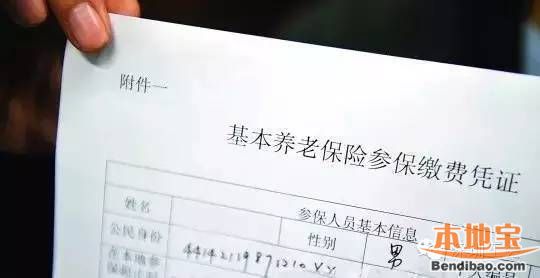 附件一
基本养老保险参保缴费凭证
参保人员基本信息
姓名 性别 男
公民身份
在本地参
本地宝
Bendibao.com